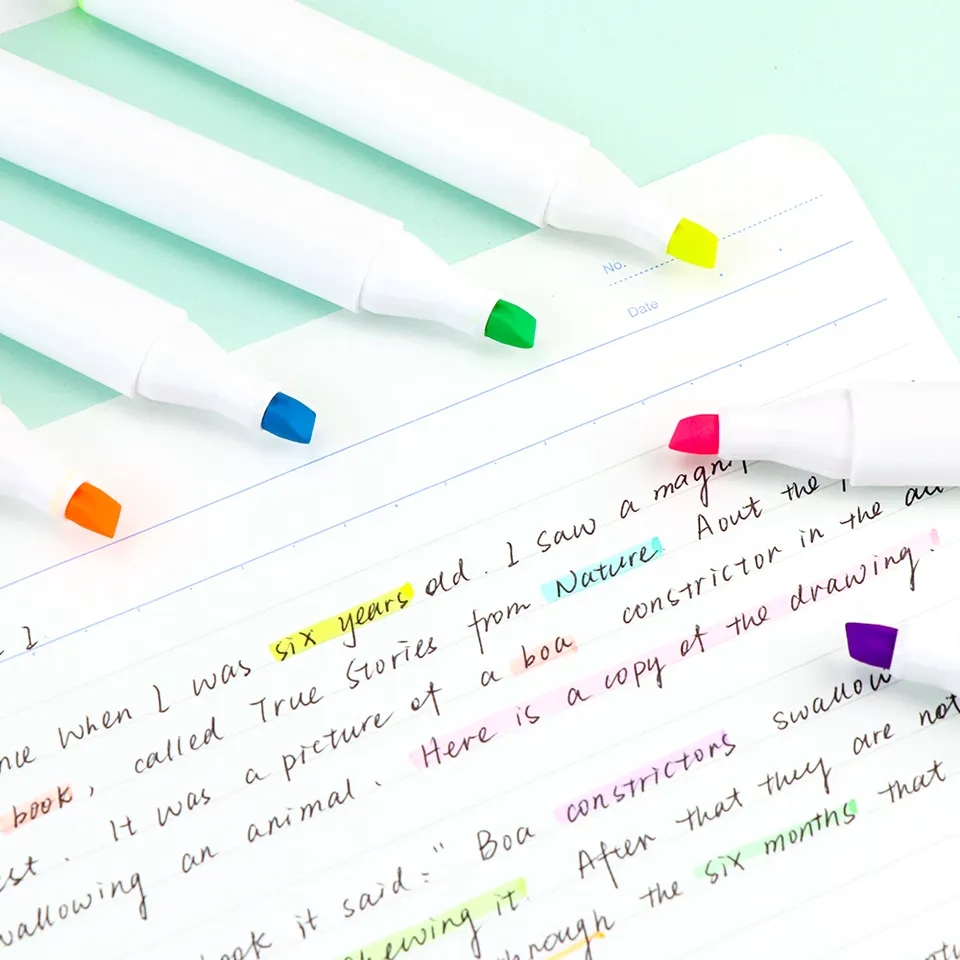 No.
Date
1
when I was six years old. I saw a
book, called True Stories from Nature. Aout the
It was a picture of a boa constrictor in the
swallowing an animal. Here is a copy of the drawing.
it said: " Boa constrictors swallow
chewing it. After that they are not
through the six months that